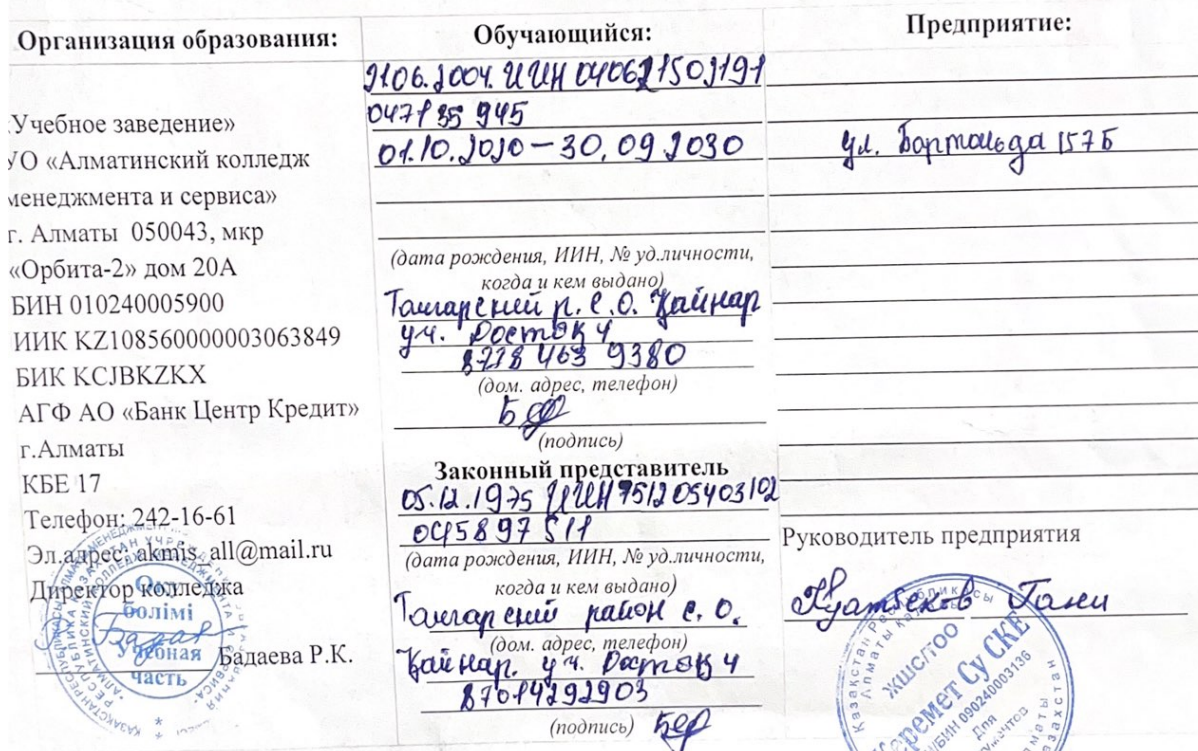 Организация образования:
«Учебное заведение»
УО «Алматинский колледж
менеджмента и сервиса»
г. Алматы 050043, мкр
«Орбита-2» дом 20А
БИН 010240005900
ИИК KZ108560000003063849
БИК KCJBKZKX
АГФ АО «Банк Центр Кредит»
г.Алматы
КБЕ 17
Телефон: 242-16-61
Эл.адрес: akmis_all@mail.ru
Директор колледжа
Оқу
бөлімі
Учебная
часть
Бадаева Р.К.
Обучающийся:
21.06.2004. ИИН 040621502191
047135945
01.10.2020 – 30.09.2030
(дата рождения, ИИН, № уд.личности,
когда и кем выдано)
Талгарский р. с.о. Қайнар
уч. Росток 4
8778 463 9380
(дом. адрес, телефон)
(подпись)
Законный представитель
05.12.1975 ИИН 751205403102
045897511
(дата рождения, ИИН, № уд.личности,
когда и кем выдано)
Талгарский район с.о.
(дом. адрес, телефон)
Қайнар. уч. Росток 4
87014292903
(подпись)
Предприятие:
ул. Бартольда 157Б
Руководитель предприятия
Гани
Қазақстан Республикасы
ЖШС/ТОО
Керемет Су СКЕ
БИН 090240003136
Для